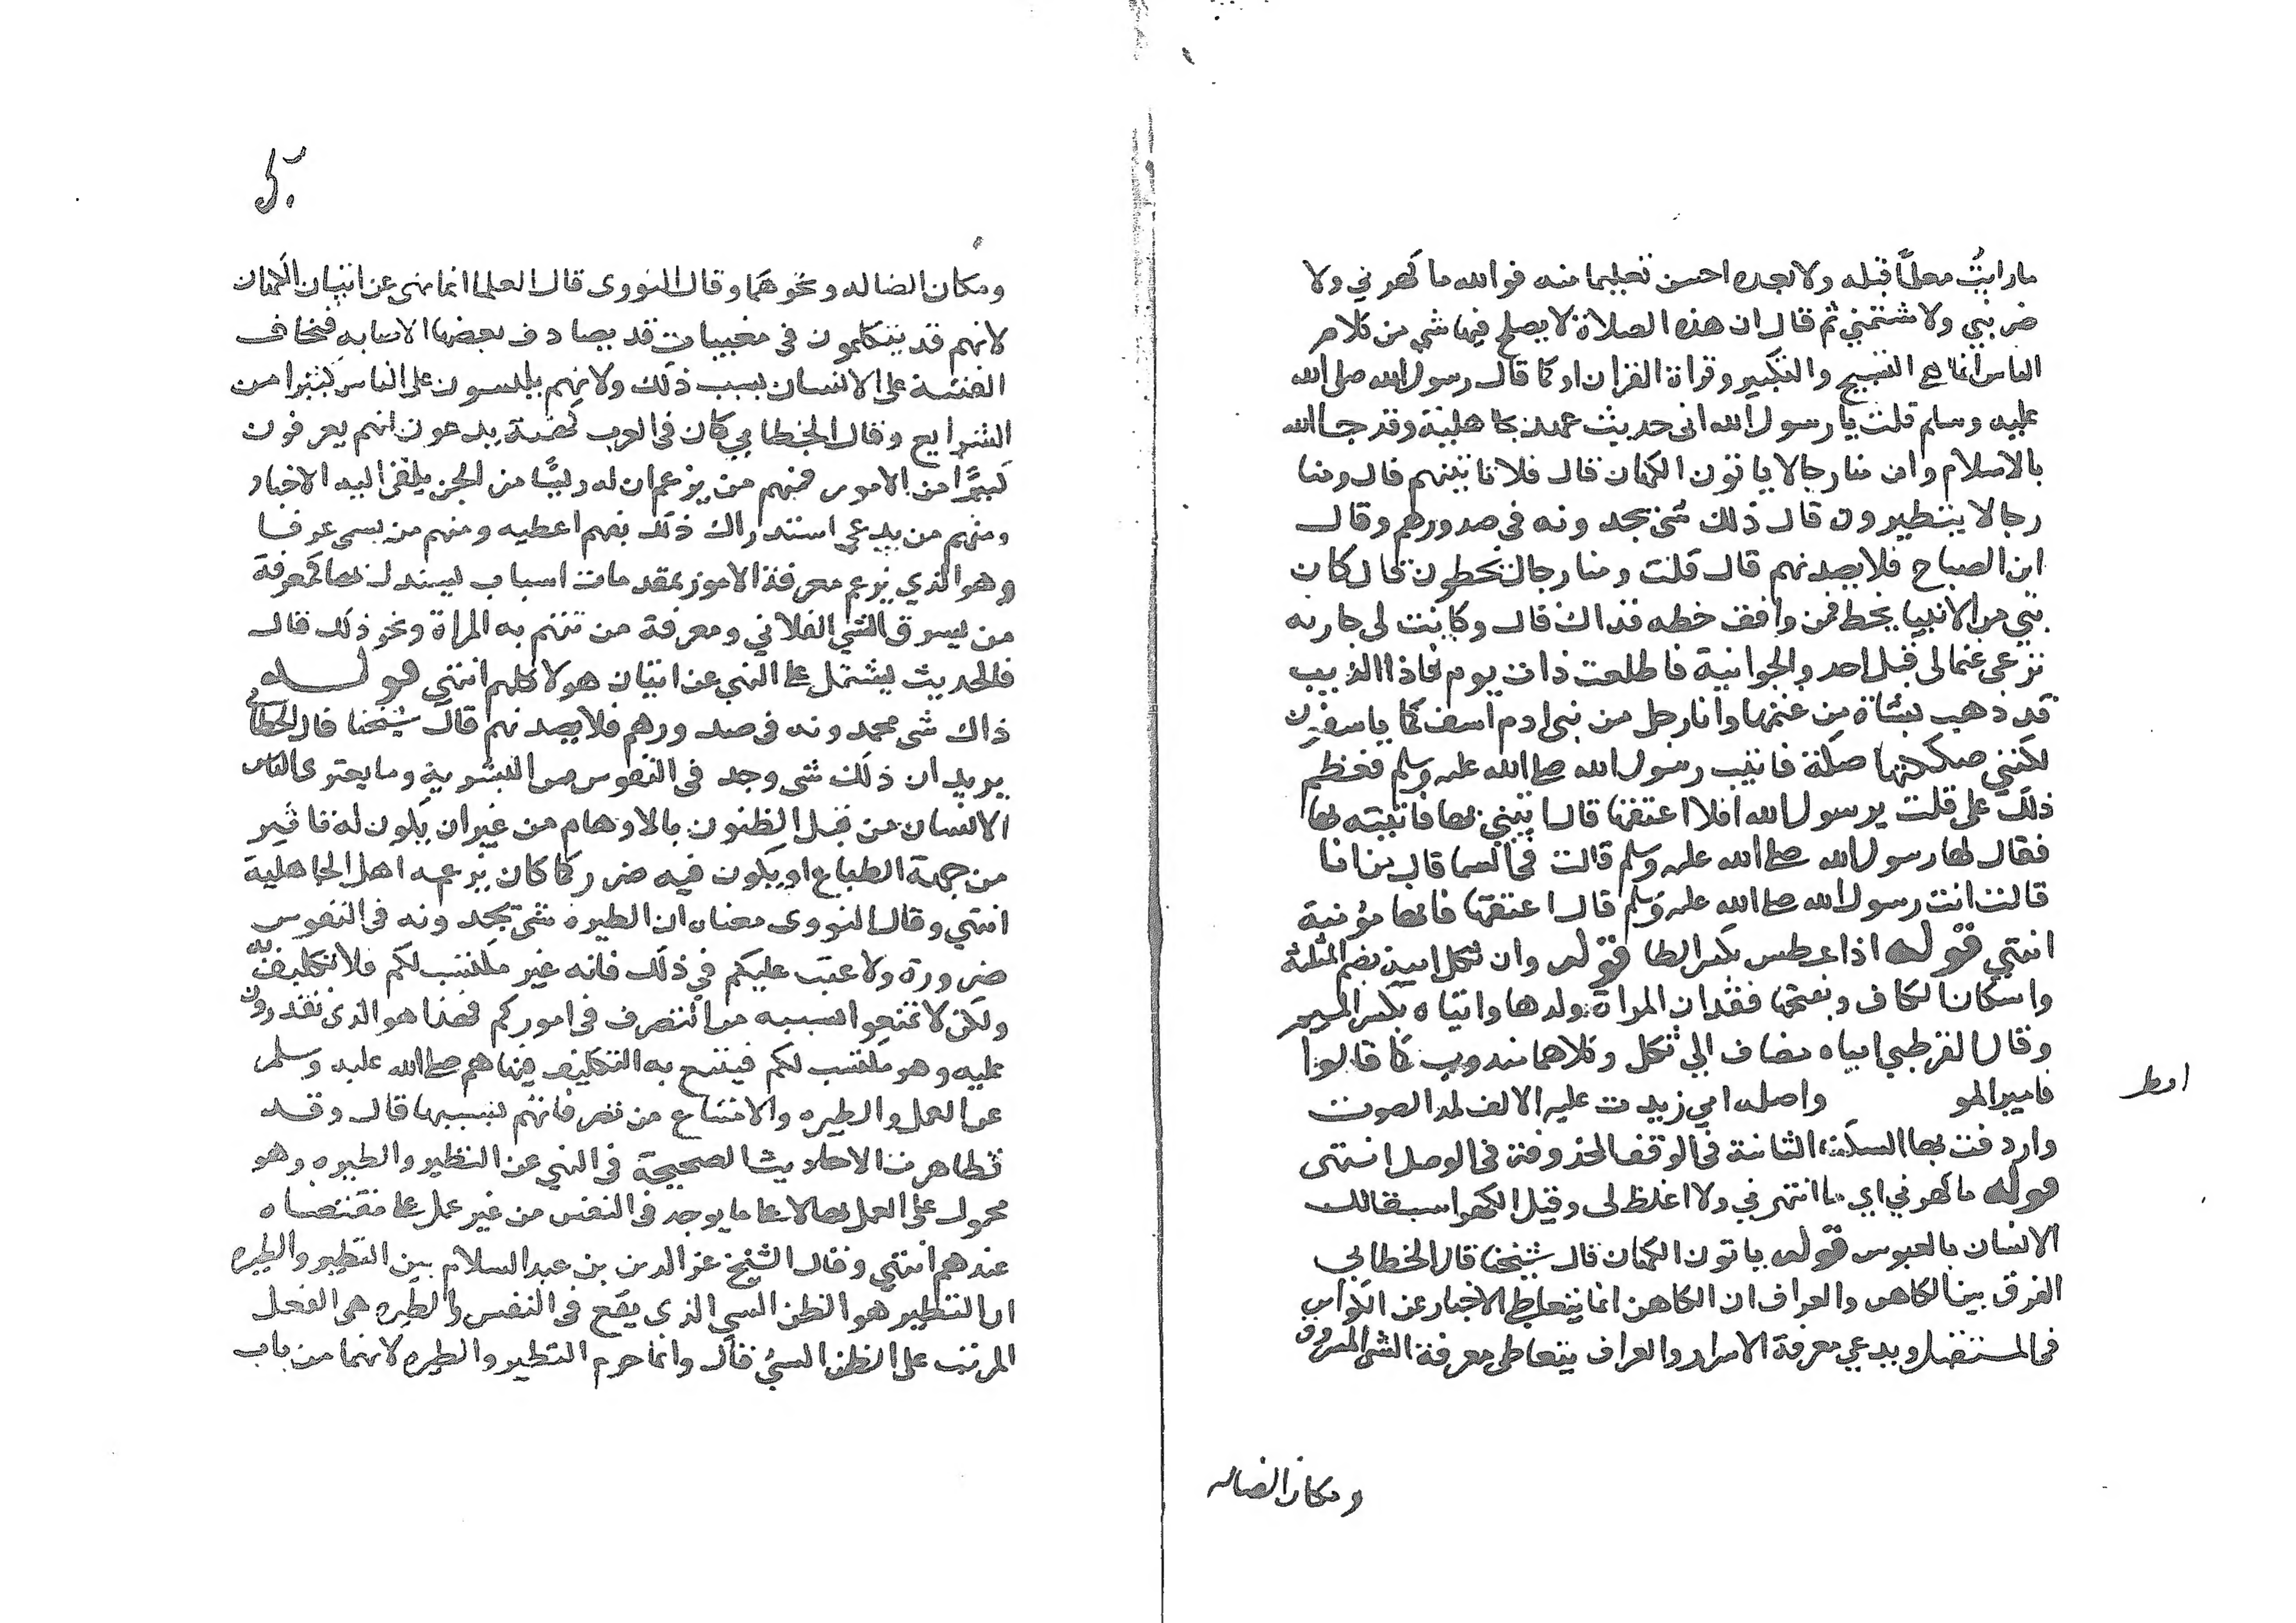 ما رايتُ معلمًا قبله ولا بعده احسن تعليما منه فوالله ما كهرني ولا
ضربني ولا شتمني ثم قال ان هذه الصلاة لا يصلح فيها شي من كلام
الناس انما هي التسبيح والتكبير وقراة القران او كما قال رسول الله صلى الله
عليه وسلم قلت يا رسول الله انى حديث عهد بجاهلية وقد جا الله
بالاسلام وان منا رجالا ياتون الكهان قال فلا تاتيهم قال ومنا
رجالا يتطيرون قال ذلك شى يجدونه فى صدورهم وقال
ابن الصباح فلا يصدنهم قال قلت ومنا رجال يخطون قال كان
نبي من الانبيا يخط فمن وافق خطه فذاك قال وكانت لى جاريه
ترعى غنما لى قبل احد والجوانية فاطلعت ذات يوم فاذا الذيب
قد ذهب بشاة من غنمها وانا رجل من بنى ادم آسف كما ياسفون
لكنني صككتها صكة فاتيت رسول الله صلى الله عليه وسلم فعظم
ذلك على قلت يرسول الله افلا اعتقها قال ايتيني بها فاتيته بها
فقال لها رسول الله صلى الله عليه وسلم قالت فى السما قال من انا
قالت انت رسول الله صلى الله عليه وسلم قال اعتقها فانها مؤمنة
انتهي قوله اذا عطس بكسر الطا قوله وان ثكل امية بضم المثلثة
واسكان الكاف وبفتحها فقدان المراة ولدها وامياه بكسر الميم
وقال القرطبي امياه مضاف الي ثكل وكلاهما مندوب كما قالوا
فامير المو واصله امي زيدت عليه الالف لمد الصوت
واردفت بها السكت الثابتة فى الوقف المحذوفة فى الوصل انتهى
قوله ما كهرني اي ما انتهرني ولا اغلظ لى وقيل الكهر استقبالك
الانسان بالعبوس قوله ياتون الكهان قال شيخنا قال الخطابي
الفرق بين الكاهن والعراف ان الكاهن انما يتعاطى الاخبار عن الكوائن
فى المستقبل ويدعي معرفة الاسرار والعراف يتعاطى معرفة الشى المسروق
ومكان الضاله
ومكان الضاله ونحوهما وقال النووى قال العلما انما نهى عن اتيان الكهان
لانهم قد يتكلمون في مغيبات قد يصادف بعضها الاصابه فيخاف
الفتنة على الانسان بسبب ذلك ولانهم يلبسون على الناس كثيرا من
الشرايع وقال الخطابي كان فى العرب كهنة يدعون انهم يعرفون
كثيرًا من الامور فمنهم من يزعم ان له رئيًا من الجن يلقى اليه الاخبار
ومنهم من يدعي استدراك ذلك بفهم اعطيه ومنهم من يسمى عرفا
وهو الذي يزعم معرفة الامور بمقدمات اسباب يستدل بها كمعرفة
من يسرق الشي الفلاني ومعرفة من تتهم به المراة ونحو ذلك قال
فالحديث يشتمل على النهي عن اتيان هولا كلهم انتهي قوله
ذاك شى يجدونه فى صدورهم فلا يصدنهم قال شيخنا قال الخطابي
يريد ان ذلك شى وجد فى النفوس من البشرية وما يعترى الناس
الانسان من قبل الظنون بالاوهام من غير ان يكون له تاثير
من جهة الطباع او يكون فيه ضرر كما كان يزعمه اهل الجاهلية
انتهي وقال النووى معناه ان الطيره شى يجدونه فى النفوس
ضرورة ولا عتب عليكم في ذلك فانه غير مكتسب لكم فلا تكليف به
ولكن لا تمتنعوا بسببه من التصرف فى اموركم فهذا هو الذى تقدرون
عليه وهو مكتسب لكم فيتتح به التكليف فنهاهم صلى الله عليه وسلم
عن العمل والطيره والامتناع من تصرفاتهم بسببها قال وقد
تظاهرت الاحاديث الصحيحة فى النهي عن التطير والطيره وهو
محمول على العمل بها لا على ما يوجد فى النفس من غير عمل على مقتضاه
عندهم انتهي وقال الشيخ عز الدين بن عبد السلام بين التطير والطيره
ان التطير هو الظن السي الذى يقع فى النفس والطيره هى الفعل
المرتب على الظن السئ قال وانما حرم التطير والطيره لانهما من باب